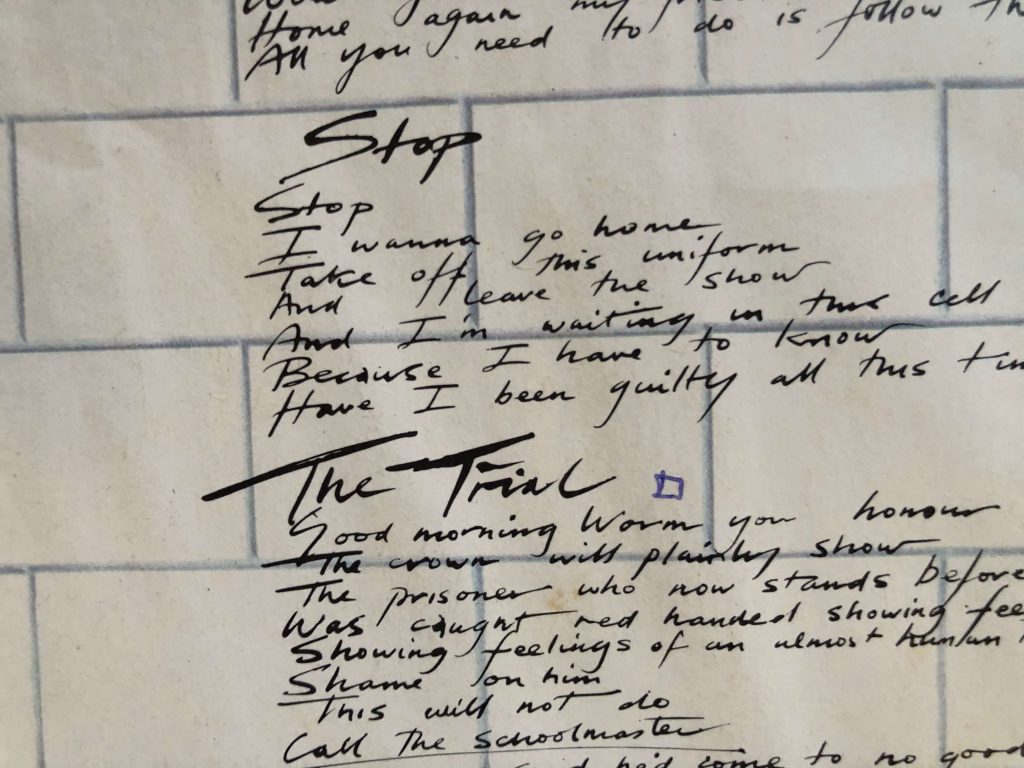 Home again
All you need to do is follow
Stop
Stop
I wanna go home
Take off this uniform
And leave the show
And I'm waiting in this cell
Because I have to know
Have I been guilty all this
The Trial
Good morning Worm you honour
The crown will plainly show
The prisoner who now stands before
Was caught red handed showing
Showing feelings of an almost human
Shame on him
This will not do
Call The Schoolmaster
had come to no good